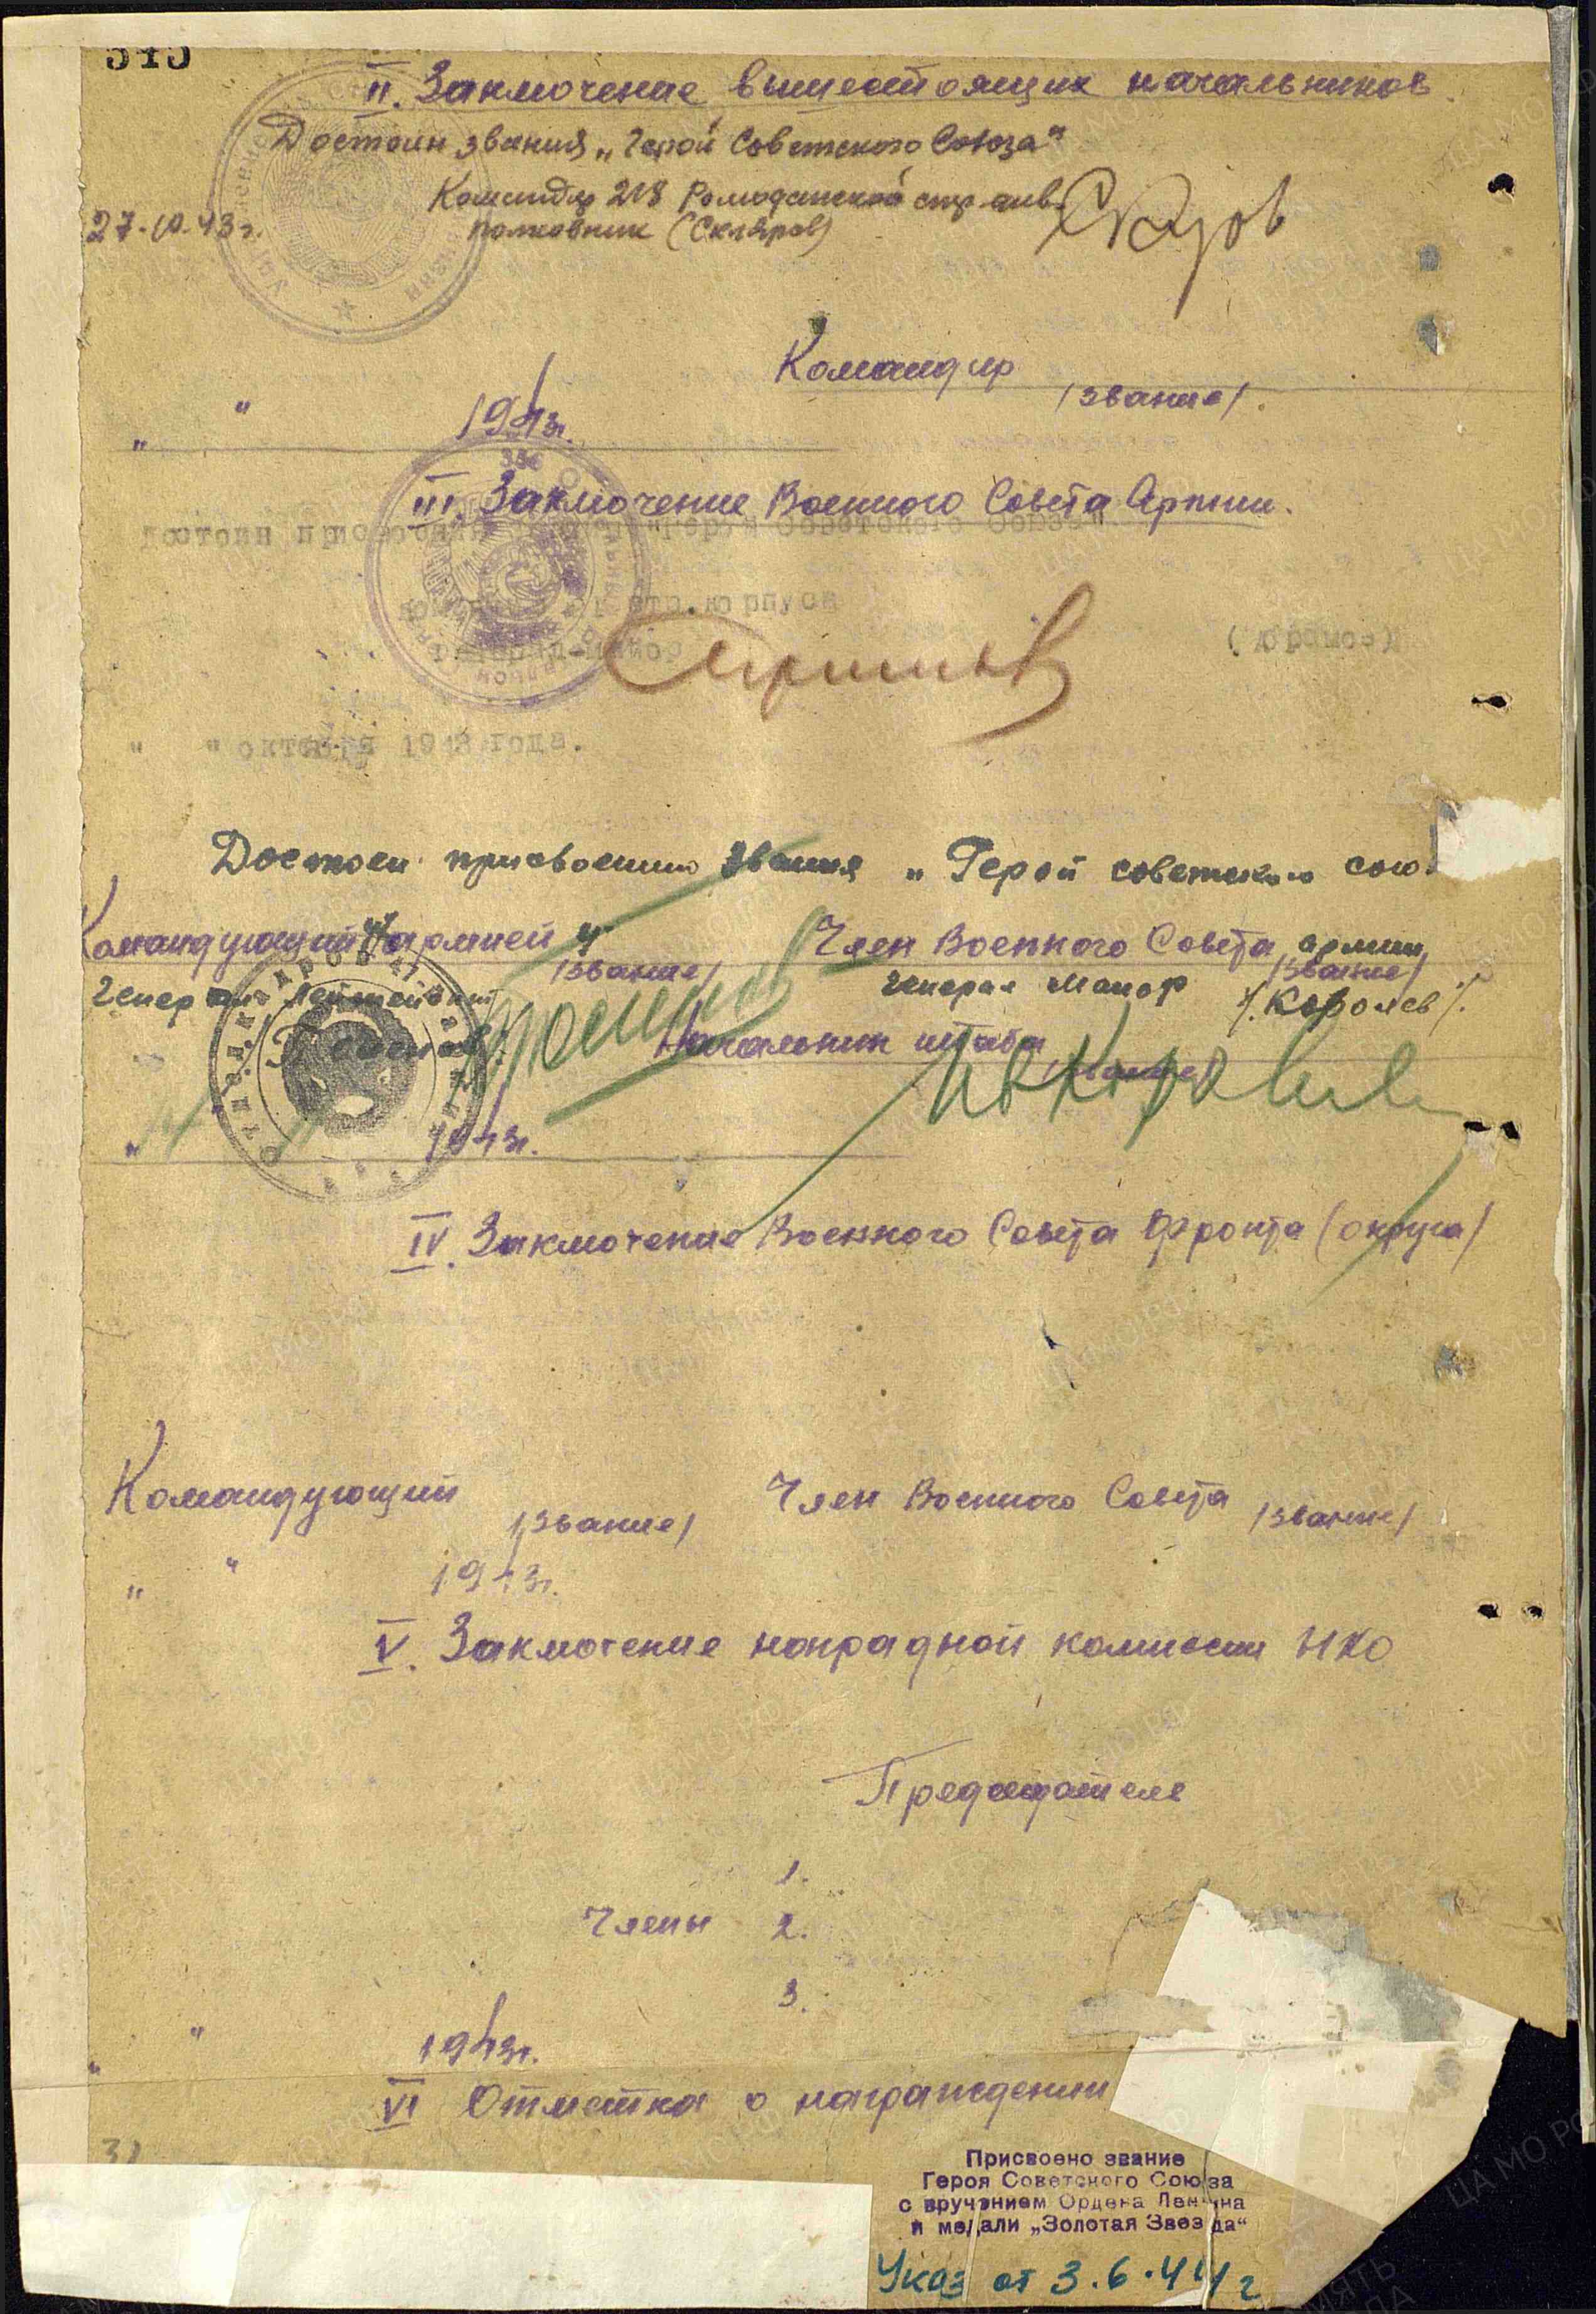 II. Заключение вышестоящих начальников.
Достоин звания „Герой Советского Союза"
Командир 218 Ромодановской стр. див.
27.10.43г. полковник (Скляров)
Командир
/звание/.
" " 1943г.
III. Заключение Военного Совета Армии.
Достоин присвоения "Герой Советского Союза".
стр.корпуса
генерал-майор
" " октября 1943 года.
Достоен присвоению звания „Герой советского сою
Командующий 47 армией
/звание/
Член Военного Совета армии
/звание/
Генерал Лейтенант
Генерал Майор
/.Королев/.
Начальник штаба
/звание/
" 1943г.
IV. Заключение Военного Совета Фронта (округа)
Командующий
/звание/
Член Военного Совета
/звание/
" " 1943г.
V. Заключение наградной комиссии НКО
Председатель
1.
Члены 2.
3.
" " 1943г.
VI Отметка о награждении
Присвоено звание
Героя Советского Союза
с вручением Ордена Ленина
и медали „Золотая Звезда"
Указ от 3.6.44г